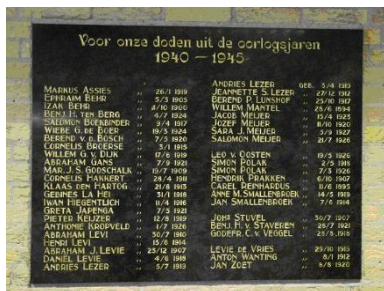 Voor onze doden uit de oorlogsjaren
1940 – 1945
Markus Assies „ 26/1 1919
Ephraim Behr „ 5/3 1905
Izak Behr „ 8/10 1900
Benj. H. ten Berg „ 4/7 1924
Salomon Boekbinder „ 9/4 1917
Wiebe G. de Boer „ 19/3 1924
Berend v.d. Bosch „ 7/5 1903
Cornelis Broerse „ 3/1 1915
Willem G. v. Dijk „ 17/6 1919
Abraham Gans „ 7/9 1921
Mar. J. S. Godschalk „ 19/7 1909
Cornelis Hakkert „ 28/4 1911
Klaas den Hartog „ 21/8 1913
Gerines La Hei „ 31/1 1918
Iwan Hiegentlich „ 11/4 1916
Greta Japenga „ 7/5 1921
Pieter Keijzer „ 12/8 1919
Anthonie Kropveld „ 1/7 1926
Abraham Levi „ 30/7 1910
Henri Levi „ 15/6 1914
Abraham J. Levie „ 25/12 1907
Daniel Levie „ 4/6 1918
Andries Lezer „ 5/7 1913
Andries Lezer geb. 5/4 1913
Jeannette S. Lezer „ 27/12 1912
Berend P. Lunshof „ 25/10 1917
Willem Mantel „ 28/6 1894
Jacob Meijer „ 15/4 1921
Jozef Meijer „ 8/10 1920
Sara J. Meijer „ 3/9 1927
Salomon Meijer „ 21/7 1926
Leo v. Oosten „ 19/5 1927
Simon Polak „ 2/5 1918
Simon Polak „ 7/3 1921
Hendrik Prakken „ 6/10 1907
Carel Reinhardus „ 11/6 1895
Anne M. Smallenbroek „ 14/5 1919
Jan Smallenbroek „ 7/6 1914
Joh˚ Stuvel „ 30/7 1907
Benj. H. v. Staveren „ 26/7 1921
Godefr. C. v. Veggel „ 25/8 1918
Levie de Vries „ 29/10 1915
Anton Wanting „ 8/1 1912
Jan Zoet „ 8/8 1920